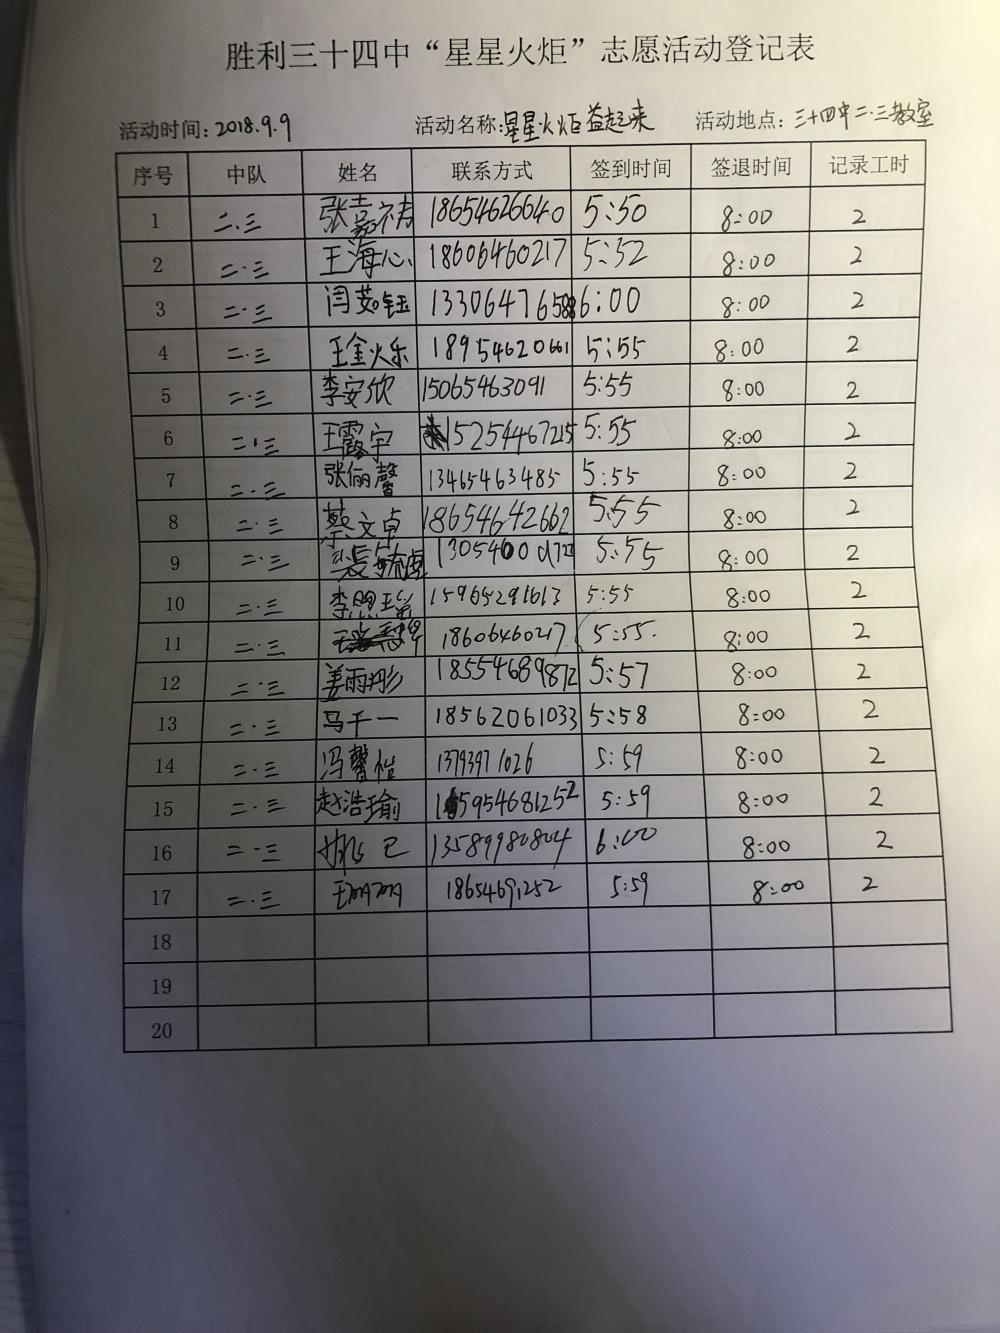 胜利三十四中“星星火炬”志愿活动登记表
活动时间：2018.9.9 活动名称：星星火炬益起来 活动地点：三十四中二.三教室
序号 中队 姓名 联系方式 签到时间 签退时间 记录工时
1 二.三 张嘉祎 18654626640 5:50 8:00 2
2 二.三 王海心 18606460217 5:52 8:00 2
3 二.三 闫茹钰 133064765 6:00 8:00 2
4 二.三 王金火乐 18954620661 5:55 8:00 2
5 二.三 李安欣 15065463091 5:55 8:00 2
6 二.三 王露宇 15254467215 5:55 8:00 2
7 二.三 张俪馨 13465463485 5:55 8:00 2
8 二.三 蔡文卓 18654642662 5:55 8:00 2
9 二.三 5:55 8:00 2
10 二.三 李 15965291613 5:55 8:00 2
11 二.三 18606460217 5:55. 8:00 2
12 二.三 姜雨彤 18554689872 5:57 8:00 2
13 二.三 马千一 18562061033 5:58 8:00 2
14 二.三 冯馨怡 13793971026 5:59 8:00 2
15 二.三 赵浩瑜 15954681252 5:59 8:00 2
16 二.三 13589980804 6:00 8:00 2
17 二.三 王 18654691252 5:59 8:00 2
18
19
20